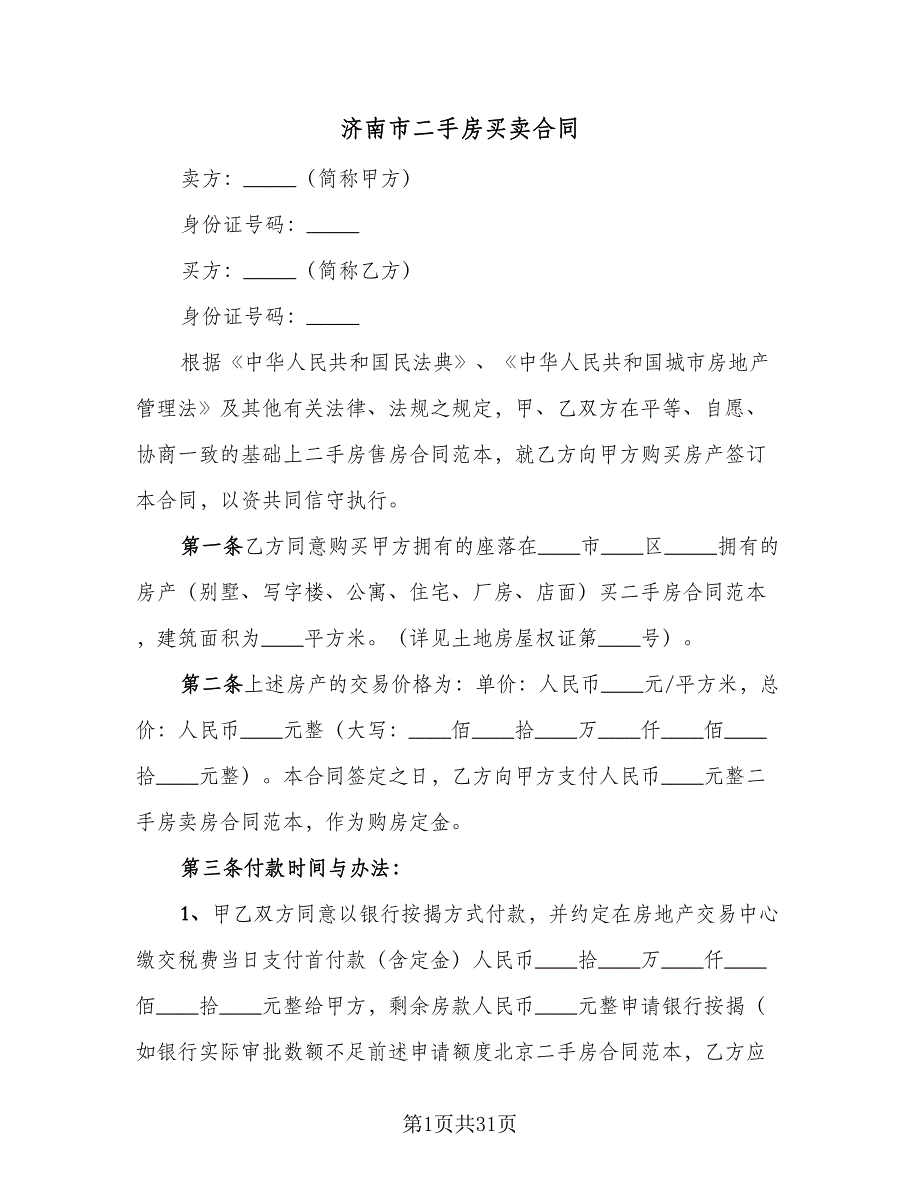 济南市二手房买卖合同
卖方：_____（简称甲方）
身份证号码：_____
买方：_____（简称乙方）
身份证号码：_____
根据《中华人民共和国民法典》、《中华人民共和国城市房地产
管理法》及其他有关法律、法规之规定，甲、乙双方在平等、自愿、
协商一致的基础上二手房售房合同范本，就乙方向甲方购买房产签订
本合同，以资共同信守执行。
第一条乙方同意购买甲方拥有的座落在____市____区_____拥有的
房产（别墅、写字楼、公寓、住宅、厂房、店面）买二手房合同范本
，建筑面积为____平方米。（详见土地房屋权证第____号）。
第二条上述房产的交易价格为：单价：人民币____元/平方米，总
价：人民币____元整（大写：____佰____拾____万____仟____佰____
拾____元整）。本合同签定之日，乙方向甲方支付人民币____元整二
手房卖房合同范本，作为购房定金。
第三条付款时间与办法：
1、甲乙双方同意以银行按揭方式付款，并约定在房地产交易中心
缴交税费当日支付首付款（含定金）人民币____拾____万____仟____
佰____拾____元整给甲方，剩余房款人民币____元整申请银行按揭（
如银行实际审批数额不足前述申请额度北京二手房合同范本，乙方应
第1页共31页